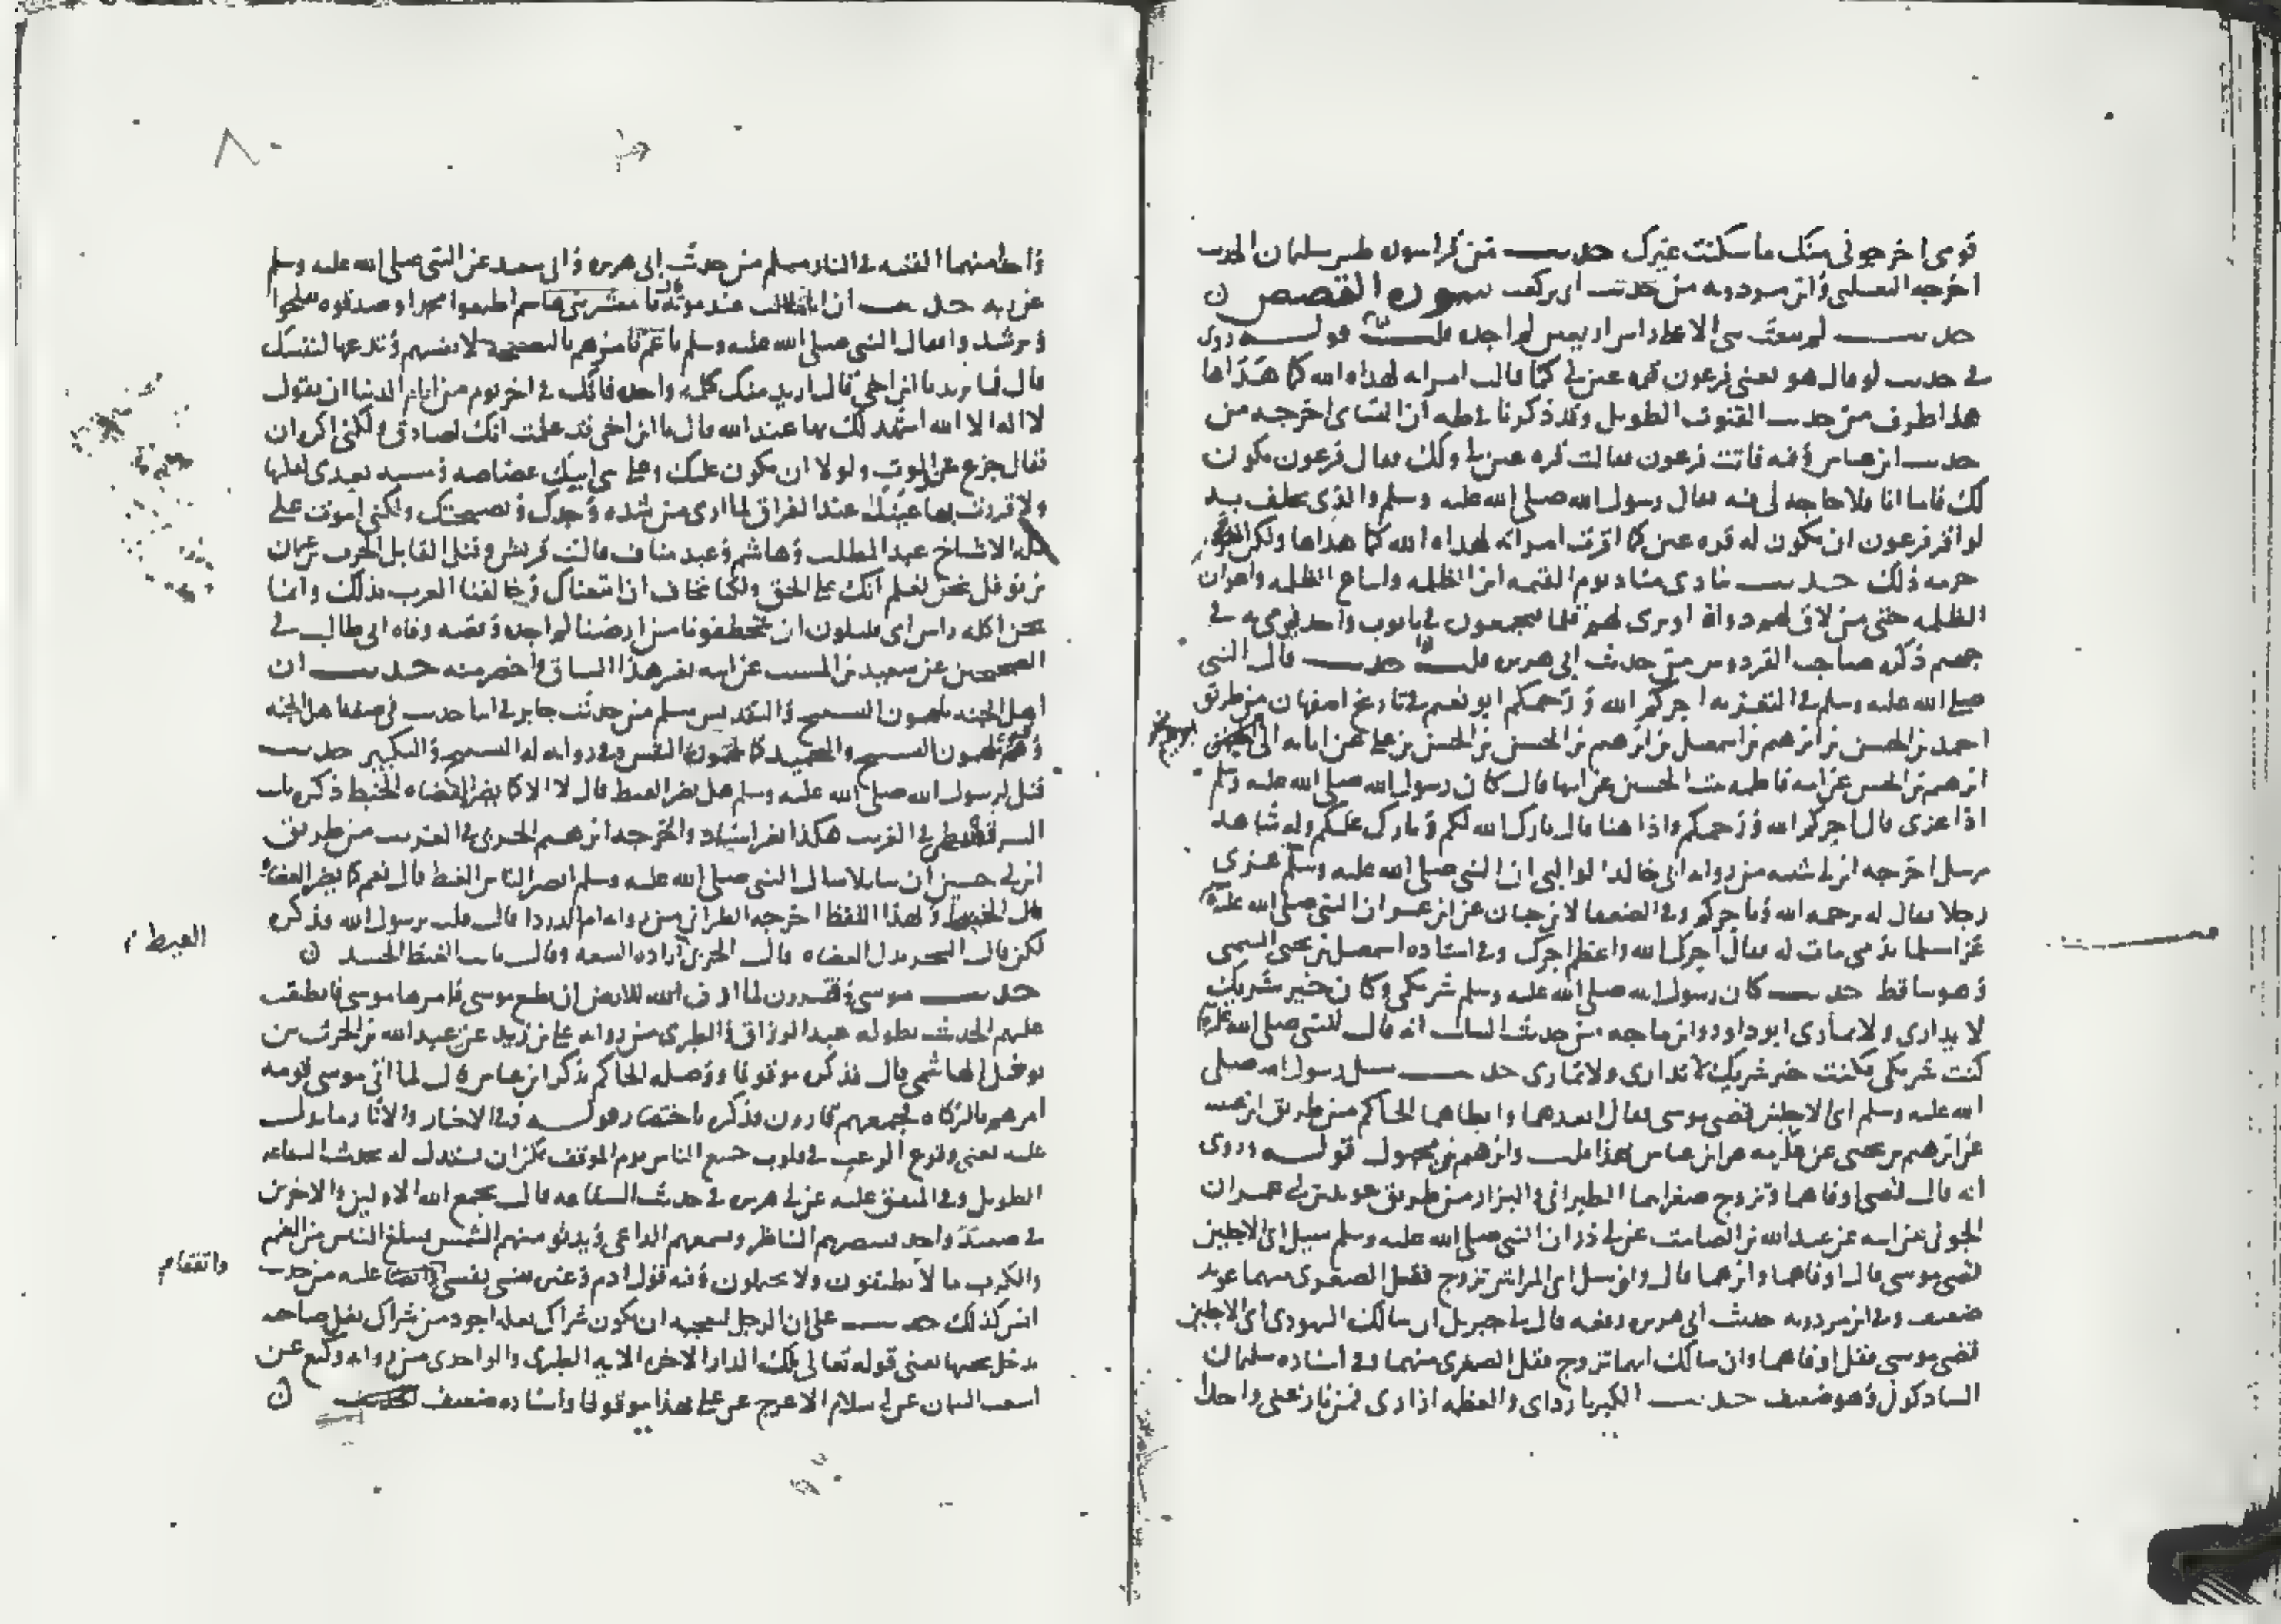 قومى اخرجونى منك ما سكنت غيرك حديث من قرا سورة طس سليمان الحديث
اخرجه الثعلبى وابن مردويه من حديث ابى بن كعب سورة القصص
حديث لم يبعث نبى الا على راس اربعين لم اجده قلت قوله روى
فى حديث لو قال هو يعنى فرعون قرة عين لى كما قالت امراته لهداه الله كما هداها
هذا طرف من حديث القنوت الطويل وقد ذكرنا فى طه ان النسائ اخرجه من
حديث ابن عباس وفيه فاتت فرعون فقالت قرة عين لى ولك فقال فرعون يكون
لك فاما انا فلا حاجة لى فيه فقال رسول الله صلى الله عليه وسلم والذى يحلف به
لو اقر فرعون ان يكون له قرة عين كما اقرت امراته لهداه الله كما هداها ولكن الله
حرمه ذلك حديث ينادى مناد يوم القيمة اين الظلمة واشياع الظلمة واعوان
الظلمة حتى من لاق لهم دواة او برى لهم قلما فيجمعون فى تابوت واحد فيرمى به فى
جهنم ذكره صاحب الفردوس من حديث ابى هريرة قلت حديث قال النبى
صلى الله عليه وسلم فى التعزية اجركم الله ورحمكم ابو نعيم فى تاريخ اصفهان من طريق
احمد بن الحسن بن ابرهيم بن اسمعيل بن ابرهيم بن الحسن بن الحسن بن على عن ابائه الى
ابرهيم بن الحسن عن امه فاطمة بنت الحسين عن ابيها قال كان رسول الله صلى الله عليه وسلم
اذا عزى قال اجركم الله ورحمكم واذا هنا قال بارك الله لكم وبارك عليكم وله شاهد
مرسل اخرجه ابن ابى شيبة من رواية ابى خالد الوالبى ان النبى صلى الله عليه وسلم عزى
رجلا فقال له يرحمه الله وياجركم وفى الضعفا لابن حبان عن ابن عمر ان النبى صلى الله عليه
عزا مسلما بذمى مات له فقال اجرك الله واعظم اجرك وفى اسناده اسمعيل بن يحيى التيمى
وهو ساقط حديث كان رسول الله صلى الله عليه وسلم شريكى وكان خير شريك
لا يدارى ولا يمارى ابو داود وابن ماجه من حديث السائب انه قال للنبى صلى الله عليه
كنت شريكى فكنت خير شريك لا تدارى ولا تمارى حديث سئل رسول الله صلى
الله عليه وسلم اى الاجلين قضى موسى فقال ابعدهما وابطاهما الحاكم من طريق ابن عيينة
عن ابرهيم بن يحيى عن عكرمة عن ابن عباس بهذا قلت وابرهيم مجهول قوله وروى
انه قال قضى اوفاهما وتزوج صغراهما الطبرانى والبزار من طريق عويد بن ابى عمران
الجونى عن ابيه عن عبد الله بن الصامت عن ابى ذر ان النبى صلى الله عليه وسلم سئل اى الاجلين
قضى موسى قال اوفاهما وابرهما قال وان سئل اى المراتين تزوج فقل الصغرى منهما عويد
ضعيف وفى ابن مردويه حديث ابى هريرة رفعه قال لى جبريل ان سالك اليهودى اى الاجلين
قضى موسى فقل اوفاهما وان سالك ايهما تزوج فقل الصغرى منهما وفى اسناده سليمان
الشاذكونى وهو ضعيف حديث الكبريا رداى والعظمة ازارى فمن نازعنى واحدا
واحدا منهما القيته فى النار مسلم من حديث ابى هريرة وابى سعيد عن النبى صلى الله عليه وسلم
عن ربه حديث ان ابا طالب عند موته قال يا معشر بنى هاشم اطيعوا محمدا وصدقوه تفلحوا
وترشدوا فقال النبى صلى الله عليه وسلم يا عم تامرهم بالنصيحة لانفسهم وتدعها لنفسك
قال فما تريد يا ابن اخى قال اريد منك كلمة واحدة فانك فى اخر يوم من ايام الدنيا ان تقول
لا اله الا الله اشهد لك بها عند الله قال يا ابن اخى قد علمت انك لصادق ولكنى اكره ان
يقال جزع عن الموت ولولا ان يكون عليك وعلى بنى ابيك غضاضة ومسبة بعدى لقلتها
ولاقررت بها عينك عند الفراق لما ارى من شدة وجدك ونصيحتك ولكنى اموت على
ملة الاشياخ عبد المطلب وهاشم وعبد مناف قالت قريش وقيل القايل الحرث بن عثمان
بن نوفل نحن نعلم انك على الحق ولكنا نخاف ان اتبعناك وخالفنا العرب بذلك وانما
نحن اكلة راس اى قليلون ان يتخطفونا من ارضنا لم اجده وقصة وفاة ابى طالب فى
الصحيحين عن سعيد بن المسيب عن ابيه بغير هذا السياق واخصر منه حديث ان
اهل الجنة يلهمون التسبيح والتقديس مسلم من حديث جابر فى اثنا حديث فى صفة اهل الجنة
يلهمون التسبيح والتحميد كما تلهمون النفس وفى رواية له التسبيح والتكبير حديث
قيل لرسول الله صلى الله عليه وسلم هل يضر الغبط قال لا الا كما يضر العضاه الخبط ذكره ثابت
السرقسطى فى الغريب هكذا بغير اسناد واخرجه ابرهيم الحربى فى الغريب من طريق
ابن ابى حسين ان سايلا سال النبى صلى الله عليه وسلم ايضر الناس الغبط قال نعم كما يضر العضاه
الخبط وبهذا اللفظ اخرجه الطبرانى من رواية ام الدردا قالت قلت يرسول الله فذكره
لكن قال الشجر بدل العضاه قال الحربى اراد به السعة وقال ثابت الغبط الحسد
الغبط
حديث موسى وقرون لما اوحى الله للارض ان تطيع موسى فامرها موسى فانطبقت
عليهم الحديث بطوله عبد الرزاق والطبرى من رواية على بن زيد عن عبد الله بن الحرث بن
نوفل الهاشمى قال فذكره موقوفا ووصله الحاكم بذكر ابن عباس قال لما اتى موسى قومه
امرهم بالزكاة فجمعهم قارون فذكره باختصار قوله وفى الاخبار والاثار ما يدل
عليه يعنى وقوع الرعب فى قلوب جميع الناس يوم الموقف يمكن ان يستدل له بحديث الشفاعة
الطويل وفى المتفق عليه عن ابى هريرة فى حديث الشفاعة قال يجمع الله الاولين والاخرين
فى صعيد واحد يبصرهم الناظر ويسمعهم الداعى وتدنو منهم الشمس فيبلغ الناس من الغم
والكرب ما لا يطيقون ولا يحتملون وفيه قول ادم وغيره نفسى نفسى واتفقا عليه من حديث
واتفقا
انس كذلك حديث على ان الرجل ليعجبه ان يكون شراك نعله اجود من شراك نعل صاحبه
فيدخل تحتها يعنى قوله تعالى تلك الدار الاخرة الاية الطبرى والواحدى من رواية وكيع عن
اشعث السمان عن ابى سلام الاعرج عن على بهذا موقوفا واسناده ضعيف